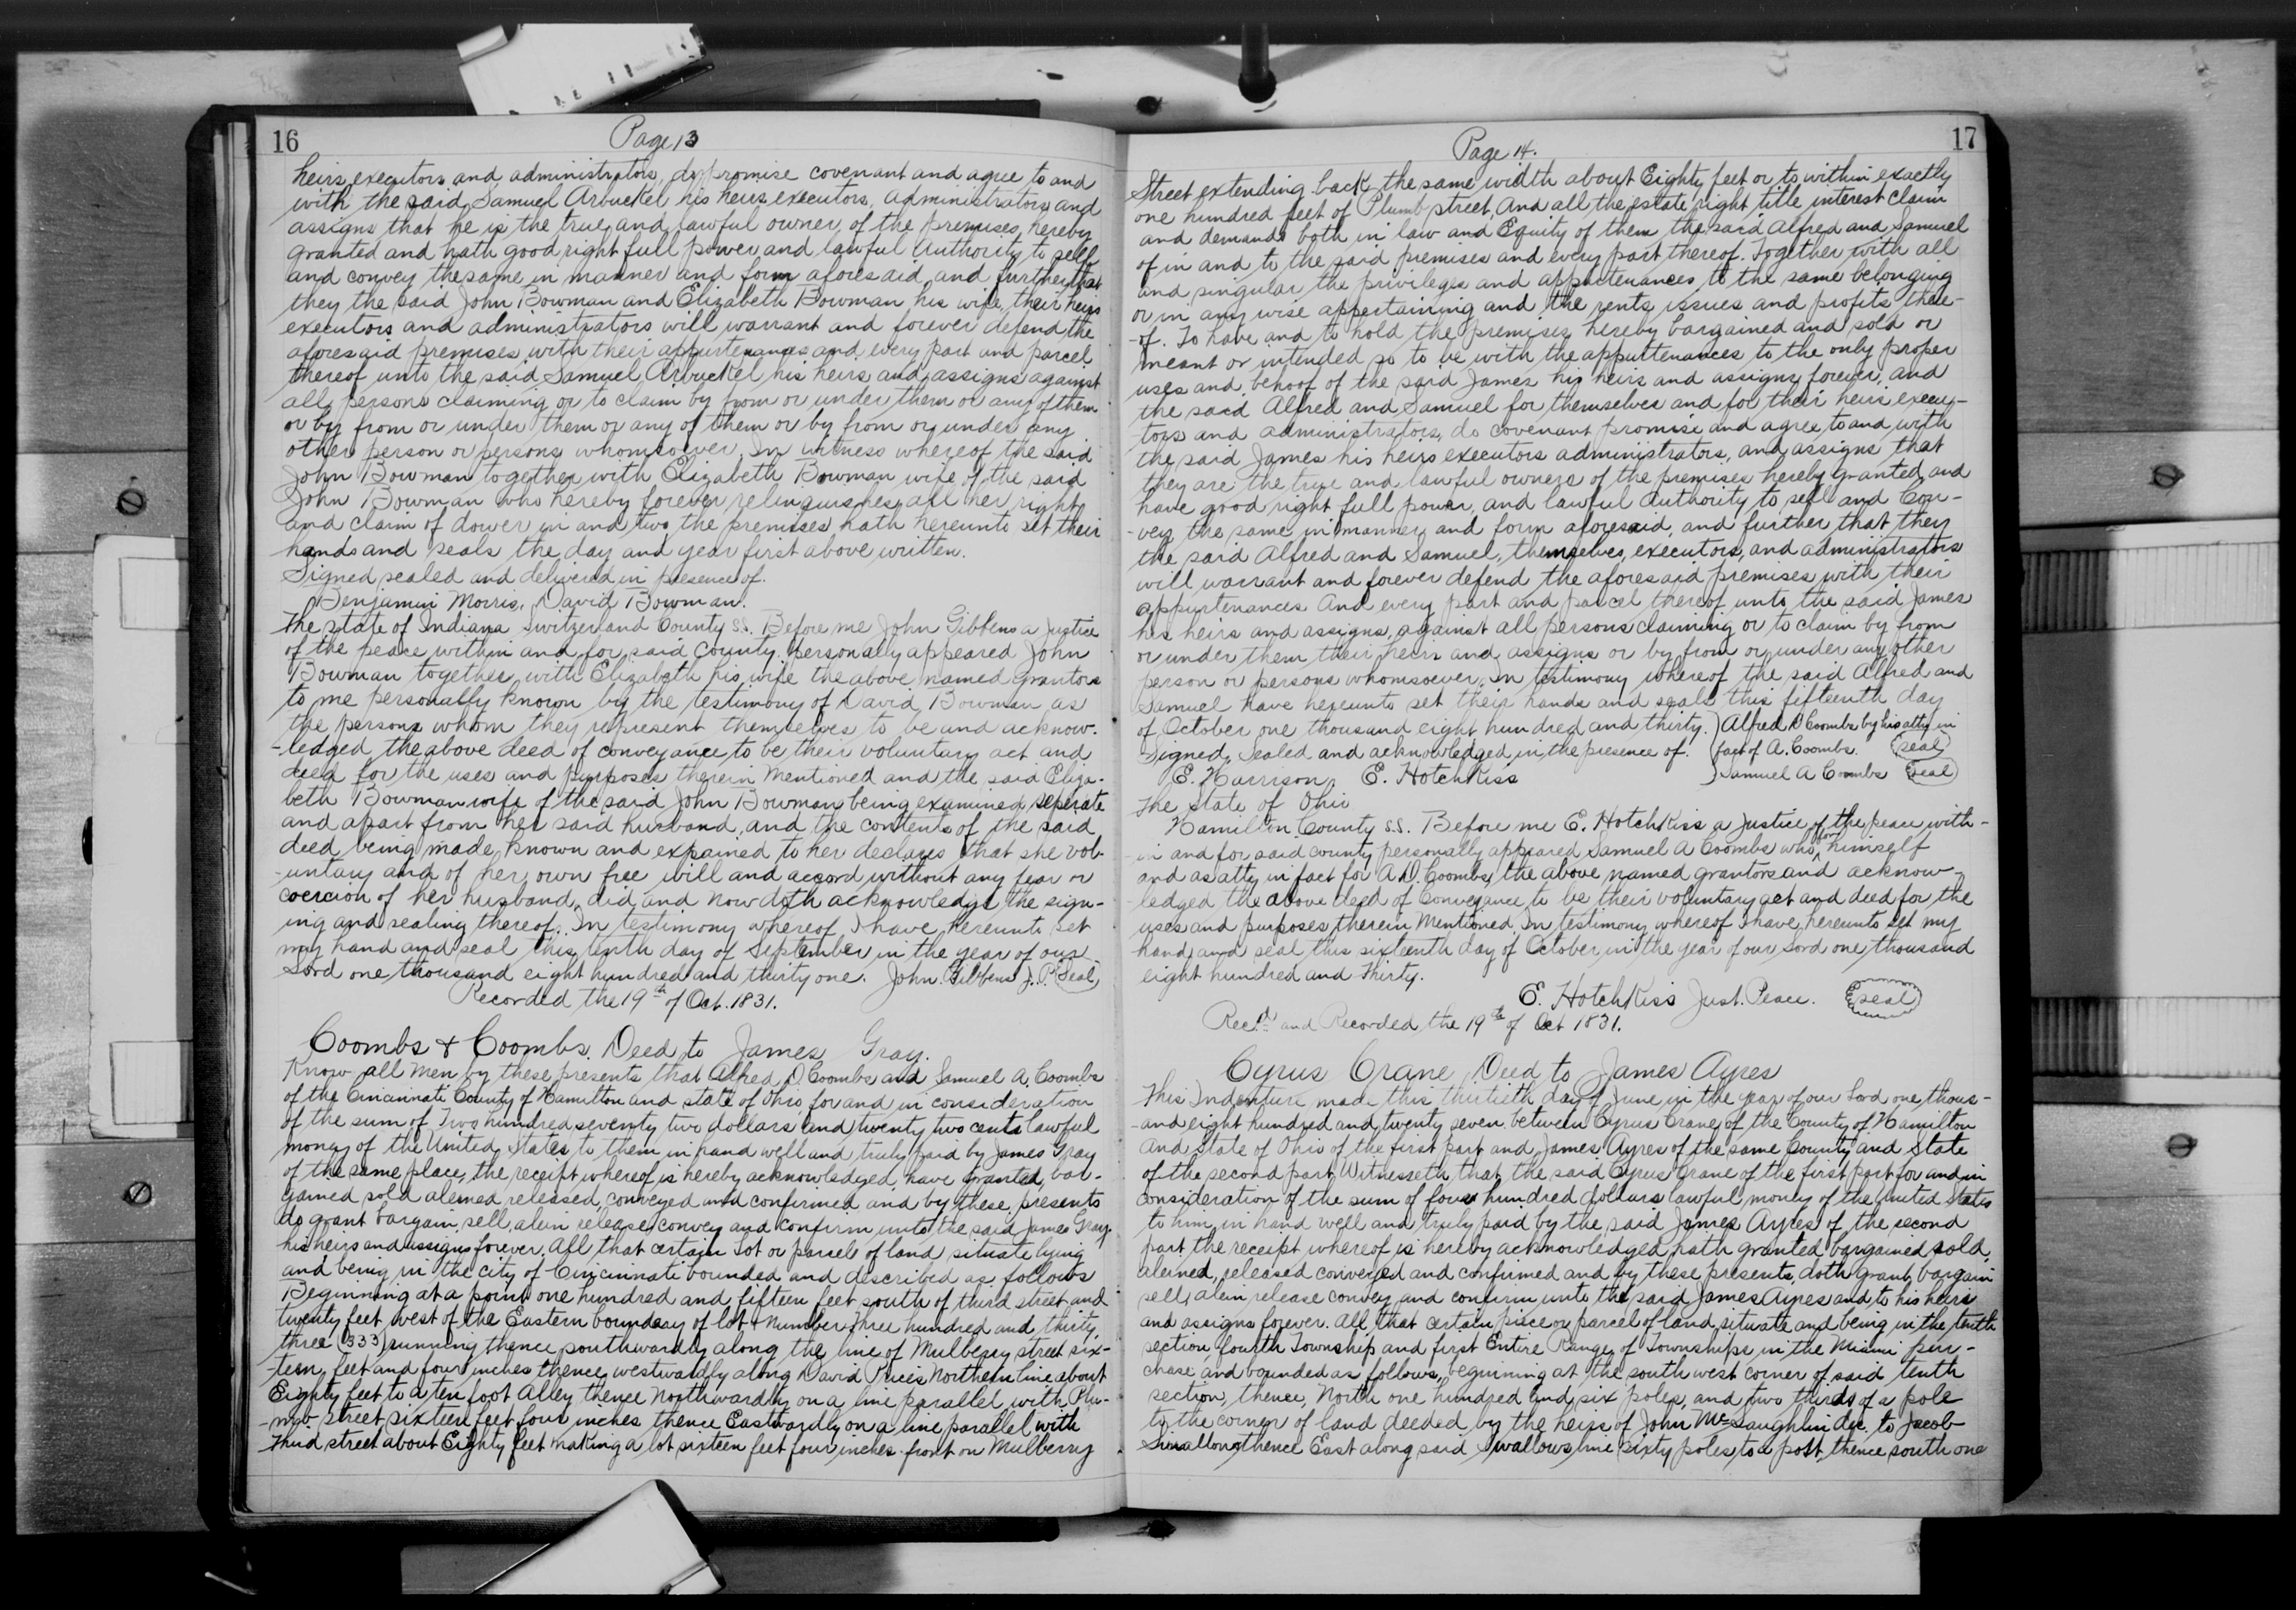 16
Page 13
heirs, executors and administrators, do promise covenant and agree to and
with the said Samuel Arbuckel his heirs executors, administrators and
assigns that he is the true and lawful owner of the premises hereby
granted and hath good right full power and lawful authority to sell
and convey the same in manner and form aforesaid and further that
they the said John Bowman and Elizabeth Bowman his wife, their heirs
executors and administrators will warrant and forever defend the
aforesaid premises with their appurtenances and every part and parcel
thereof unto the said Samuel Arbuckel his heirs and assigns against
all persons claiming or to claim by from or under them or any of them
or by from or under them or any of them or by from or under any
other person or persons whomsoever. In witness whereof the said
John Bowman together with Elizabeth Bowman wife of the said
John Bowman who hereby forever relinquishes all her right
and claim of dower in and two the premises hath hereunto set their
hands and seals the day and year first above written.
Signed sealed and delivered in presence of.
Benjamin Morris, David Bowman.
The State of Indiana Switzerland County S.S. Before me John Gibbens a Justice
of the peace within and for said County personally appeared John
Bowman together with Elizabeth his wife the above named Grantors
to me personally known by the testimony of David Bowman as
the persons whom they represent themselves to be and acknow-
-ledged the above deed of conveyance to be their voluntary act and
deed for the uses and purposes therein mentioned and the said Eliza-
beth Bowman wife of the said John Bowman being examined seperate
and apart from her said husband, and the contents of the said
deed being made known and expained to her declares that she vol-
-untary and of her own free will and accord without any fear or
coercion of her husband, did and now doth acknowledge the sign-
ing and sealing thereof. In testimony whereof I have hereunto set
my hand and seal this tenth day of September in the year of our
Lord one thousand eight hundred and thirty one. John Gibbens J.P. Seal
Recorded the 19th of Oct. 1831.
Coombs & Coombs. Deed to James Gray.
Know all Men by these presents that Alfred D. Coombs and Samuel A. Coombs
of the Cincinnati County of Hamilton and state of Ohio for and in consideration
of the sum of Two hundred seventy two dollars and twenty two cents lawful
money of the United States to them in hand well and truly paid by James Gray
of the same place, the receipt whereof is hereby acknowledged, have granted, bar-
gained sold aliened released, conveyed and confirmed and by these presents
do grant bargain, sell, alien release, convey and confirm unto the said James Gray
his heirs and assigns forever. All that certain Lot or parcel of land situate lying
and being in the city of Cincinnati bounded and described as follows
Beginning at a point one hundred and fifteen feet south of third street and
twenty feet west of the Eastern boundary of lot Number Three hundred and thirty
three (333) running thence southwardly along the line of Mulberry street six-
-teen feet and four inches thence westwardly along David Price's Northern line about
Eighty feet to a ten foot Alley thence Northwardly on a line parallel with Plu-
-mb street sixteen feet four inches thence Eastwardly on a line parallel with
Third street about Eighty feet making a lot sixteen feet four inches front on Mulberry
17
Page 14.
Street extending back the same width about Eighty feet or to within exactly
one hundred feet of Plumb street, And all the estate right title interest claim
and demands both in law and Equity of them the said Alfred and Samuel
of in and to the said premises and every part thereof. Together with all
and singular the privileges and appurtenances to the same belonging
or in any wise appertaining and the rents issues and profits there-
-of. To have and to hold the premises hereby bargained and sold or
meant or intended so to be with the appurtenances to the only proper
uses and behoof of the said James his heirs and assigns forever, and
the said Alfred and Samuel for themselves and for their heirs execu-
tors and administrators, do covenant promise and agree to and with
the said James his heirs executors administrators, and assigns that
they are the true and lawful owners of the premises hereby granted and
have good right full power, and lawful authority to sell and Con-
-vey the same in manner and form aforesaid, and further that they
the said Alfred and Samuel, themselves, executors, and administrators
will warrant and forever defend the aforesaid premises with their
appurtenances And every part and parcel thereof unto the said James
his heirs and assigns, against all persons claiming or to claim by from
or under them their heirs and assigns or by from or under any other
person or persons whomsoever. In testimony whereof the said Alfred and
Samuel have hereunto set their hands and seals this fifteenth day
of October one thousand eight hundred and thirty. Alfred D Coombs by his atty in
Signed, Sealed and acknowledged in the presence of. fact of A. Coombs. Seal
E. Harrison, E. Hotchkiss Samuel A Coombs Seal
The State of Ohio
Hamilton County S.S. Before me E. Hotchkiss a Justice of the peace with-
-in and for said county personally appeared Samuel A Coombs who for himself
and as atty in fact for A D. Coombs, the above named grantors and acknow-
-ledged the above deed of Conveyance to be their voluntary act and deed for the
uses and purposes therein Mentioned. In testimony whereof I have hereunto set my
hand and seal this sixteenth day of October in the year of our Lord one thousand
eight hundred and Thirty.
E. Hotchkiss Just. Peace. Seal
Recd and Recorded the 19th of Oct 1831.
Cyrus Crane Deed to James Ayres
This Indenture made this thirtieth day of June in the year of our Lord one thous-
-and eight hundred and twenty seven between Cyrus Crane of the County of Hamilton
and State of Ohio of the first part and James Ayres of the same County and State
of the second part Witnesseth that the said Cyrus Crane of the first part for and in
consideration of the sum of four hundred dollars lawful money of the United States
to him in hand well and truly paid by the said James Ayres of the second
part, the receipt whereof is hereby acknowledged, hath granted bargained sold,
aliened, released conveyed and confirmed and by these presents, doth grant, bargain
sell, alien release convey and confirm unto the said James Ayres and to his heirs
and assigns forever. All that certain piece or parcel of land situate and being in the tenth
section fourth Township and first Entire Range of Townships in the Miami pur-
chase and bounded as follows, beginning at the south west corner of said tenth
section, thence, North one hundred and six poles, and two thirds of a pole
to the corner of land deeded by the heirs of John McLaughlin dec. to Jacob
thence East along said Swallows line sixty poles to a post, thence south one